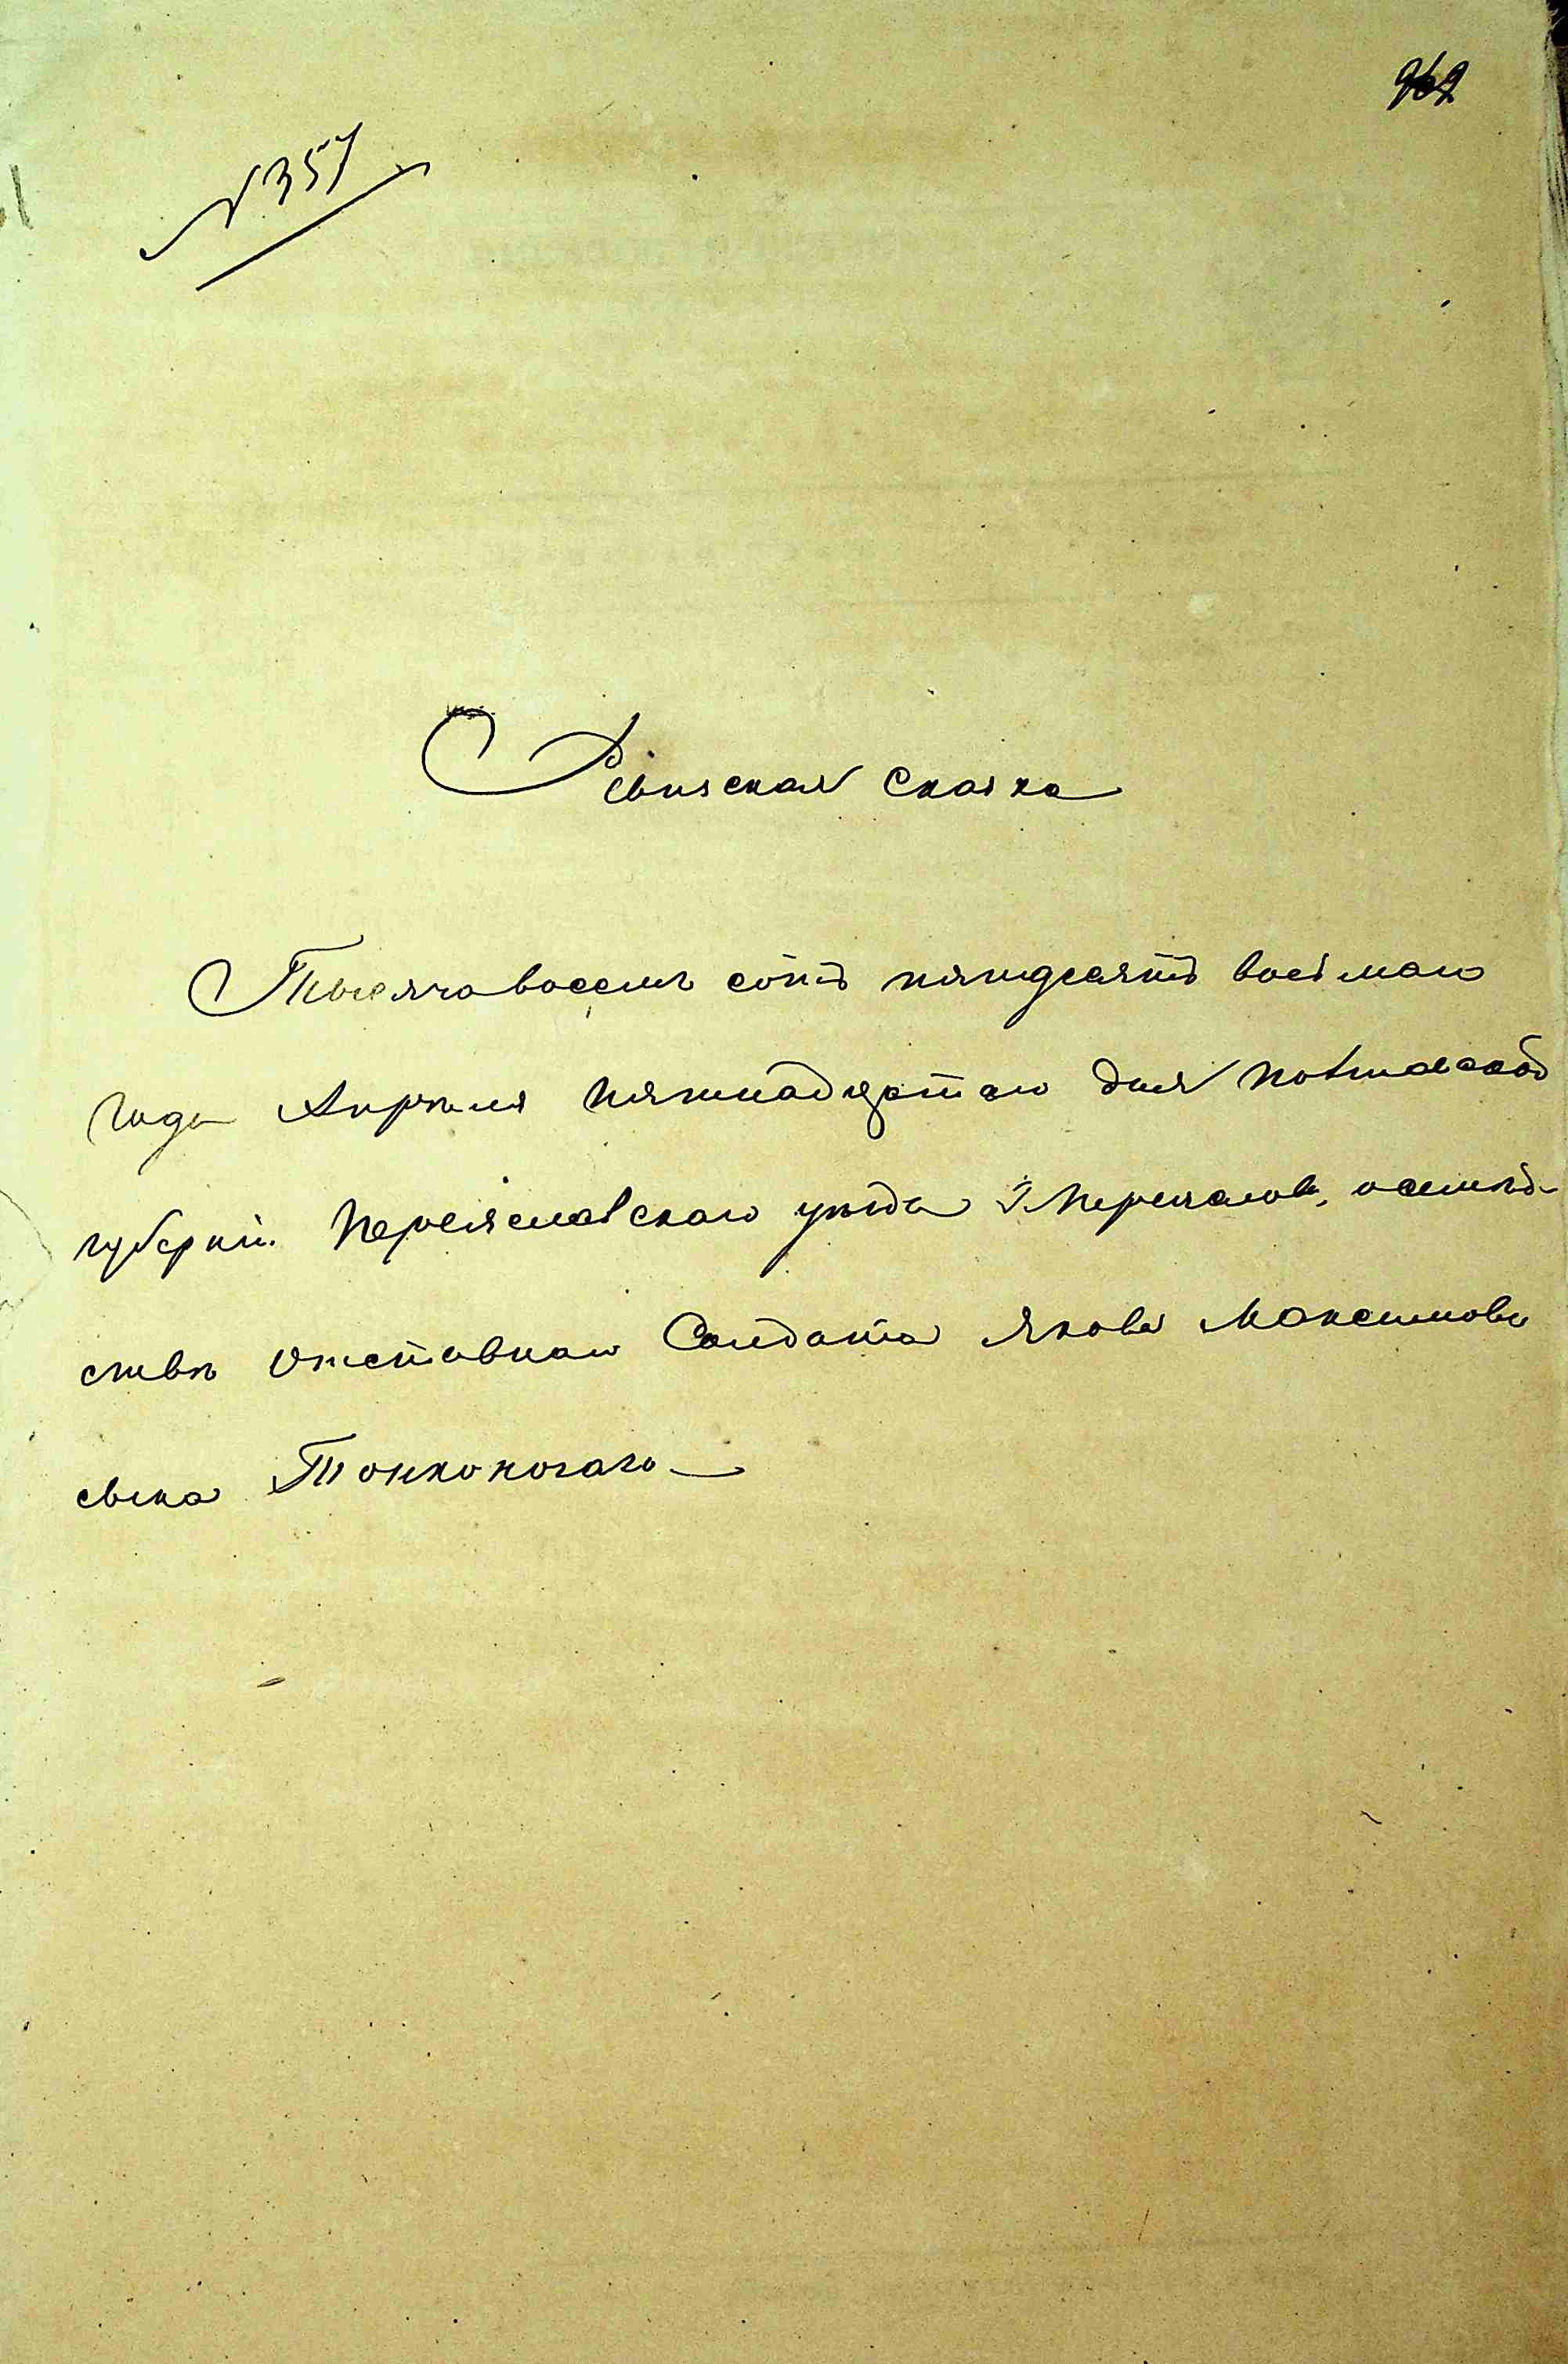 962
№ 357
Ревизская сказка
Тысяча восемь сотъ пятдесятъ восьмаго
года Апреля пятнадцатаго дня Полтавской
губерніи Переяславскаго уѣзда о семей
ствѣ Отставнаго Солдата Якова Максимова
сына Тонконогаго